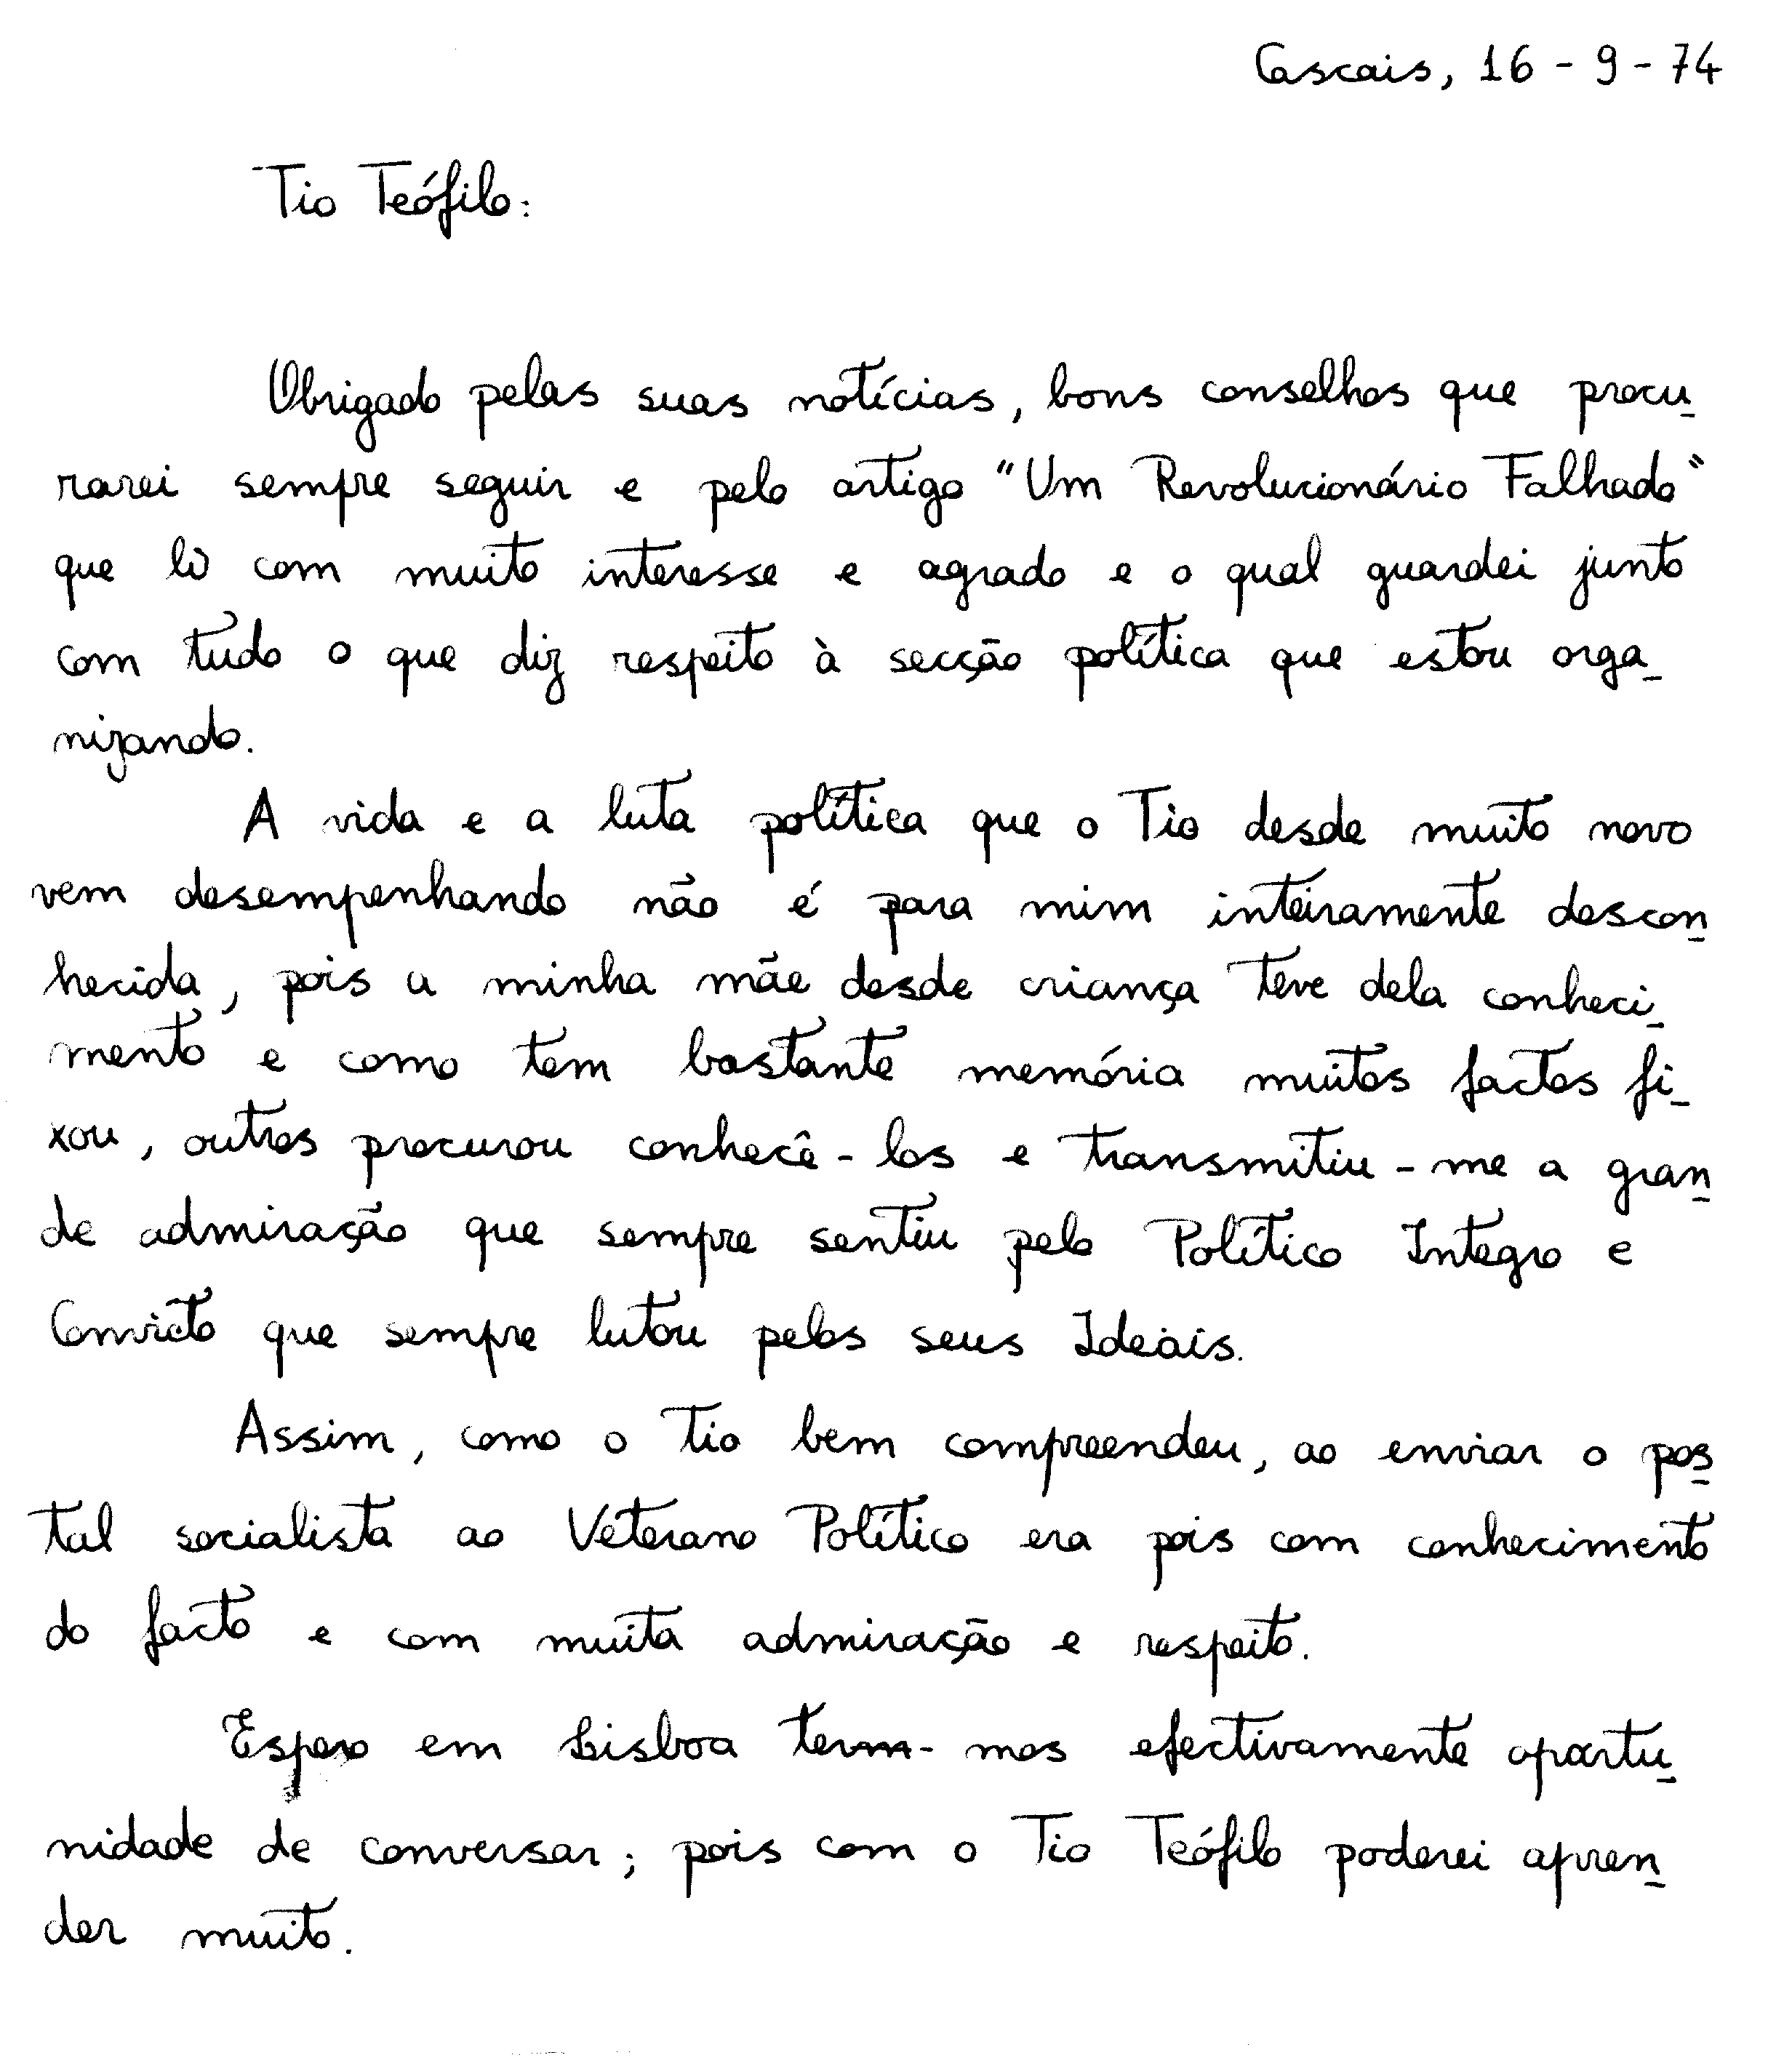 Cascais, 16 - 9 - 74
Tio Teófilo:
Obrigado pelas suas notícias, bons conselhos que procu-
rarei sempre seguir e pelo artigo "Um Revolucionário Falhado"
que li com muito interesse e agrado e o qual guardei junto
com tudo o que diz respeito à secção política que estou orga-
nizando.
A vida e a luta política que o Tio desde muito novo
vem desempenhando não é para mim inteiramente descon-
hecida, pois a minha mãe desde criança teve dela conheci-
mento e como tem bastante memória muitos factos fi-
xou, outros procurou conhecê-los e transmitiu-me a gran-
de admiração que sempre sentiu pelo Político Integro e
Convicto que sempre lutou pelos seus Ideais.
Assim, como o Tio bem compreendeu, ao enviar o pos-
tal socialista ao Veterano Político era pois com conhecimento
do facto e com muita admiração e respeito.
Espero em Lisboa termos efectivamente oportu-
nidade de conversar; pois com o Tio Teófilo poderei apren-
der muito.